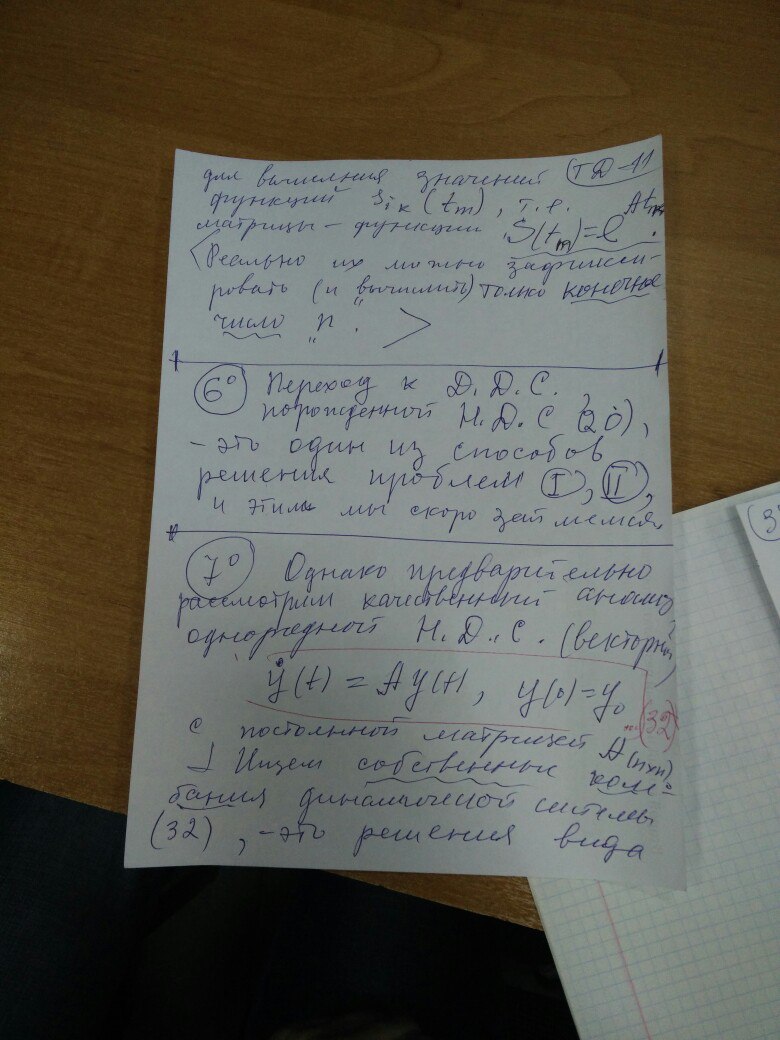 для вычисления значений ТД-11
функций S_ik(t_m), т.е.
матрицы-функции S(t_m)=e^{At_m}.
<Реально их можно зафикси-
ровать (и вычислить) только конечное
число "n". >
6° Переход к Д.Д.С.,
порожденной Н.Д.С (20),
- это один из способов
решения проблем I, II,
и этим мы скоро займемся.
7° Однако предварительно
рассмотрим качественный анализ
однородной Н.Д.С. (векторной)
ẏ(t) = Ay(t), y(0)=y₀
(32)
с постоянной матрицей A(n×n)
⊥ Ищем собственные коле-
бания динамической системы
(32), - это решения вида
(3